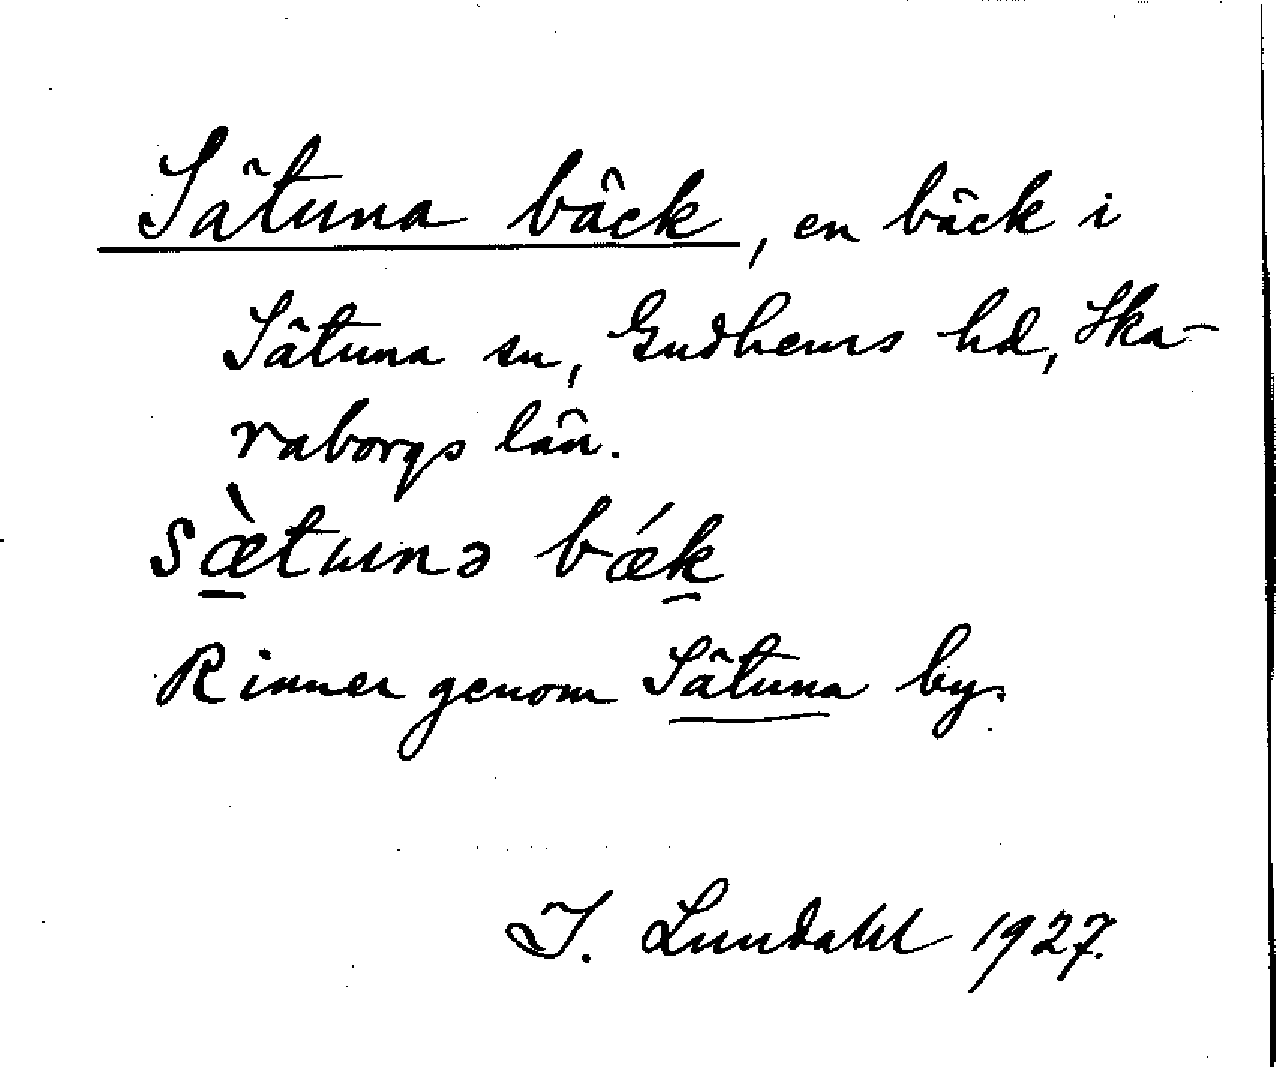 Sätuna bäck, en bäck i
Sätuna sn, Gudhems hd, Ska-
raborgs län.
sæ̠̀tɯnə bǽk̠
Rinner genom Sätuna by.
I. Lundahl 1927.